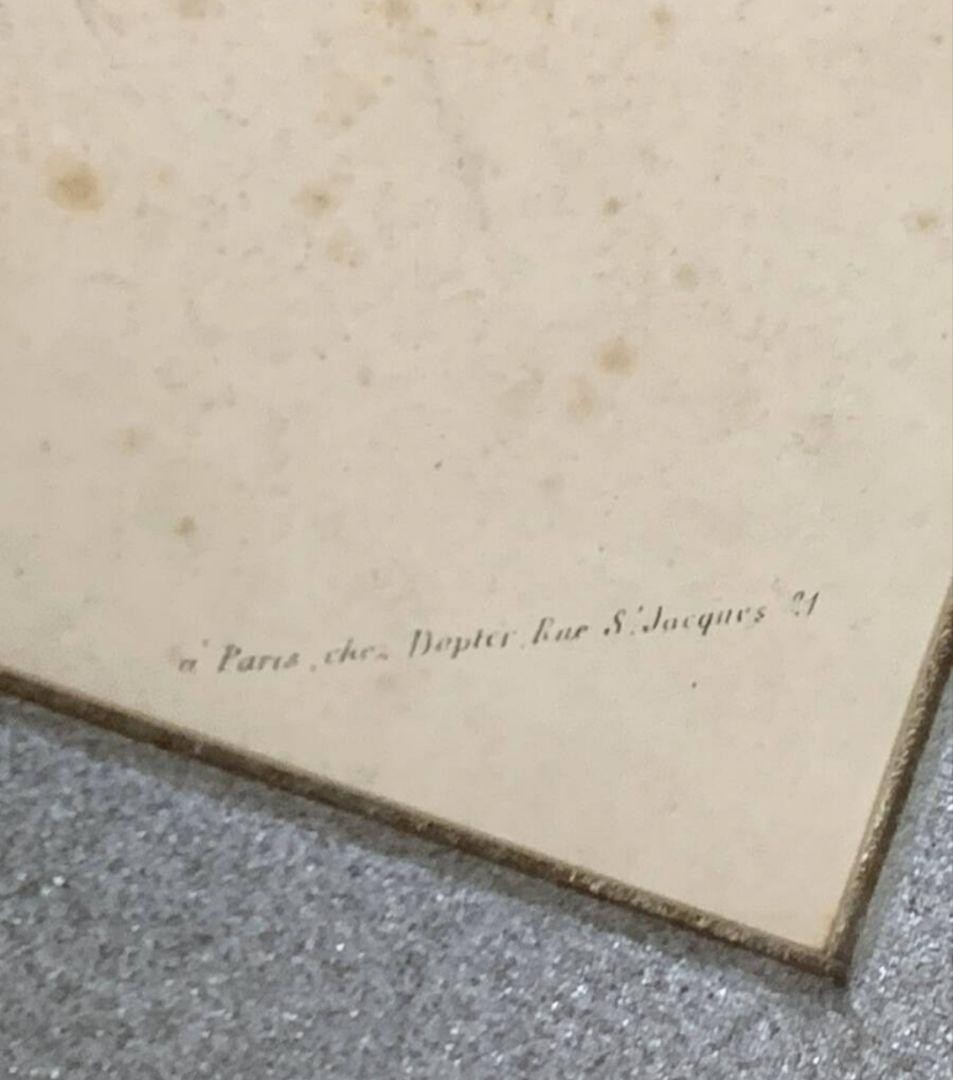 à Paris, chez Depter, Rue St Jacques 21